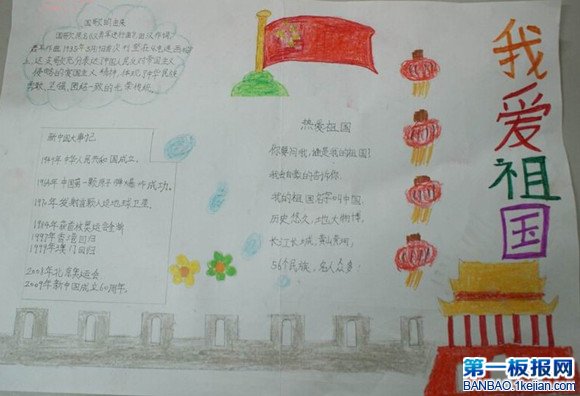 国歌的由来
国歌原名《义勇军进行曲》,由汉作词,
聂耳作曲,1935年3月
这支歌充分表达了中国人民反对帝国主义
侵略的爱国主义精神,体现了中华民族
勇敢、坚强、团结一致的光荣传统。
新中国大事记
1949年中华人民共和国成立。
1964年中国第一颗原子弹爆炸成功。
1970年发射首颗人造地球卫星。
1984年获首枚奥运金牌
1997年香港回归
1999年澳门回归
2008年北京奥运会
2009年新中国成立60周年。
热爱祖国
你要问我,谁是我的祖国!
我会自豪的告诉你,
我的祖国名字叫中国,
历史悠久,地大物博,
长江长城,黄山黄河,
56个民族,名人众多!
我爱祖国
第一板报网
BANBAO.1kejian.com